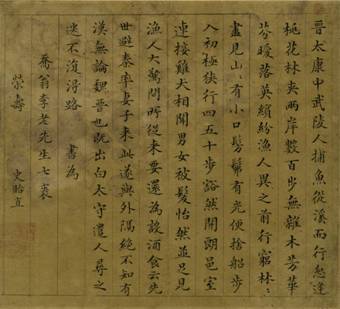 晉太康中武陵人捕魚從溪而行忽逢
桃花林夾兩岸數百步無雜木芳華
芬曖落英繽紛漁人異之前行窮林〻
盡見山〻有小口髣髴有光便捨船步
入初極狹行四五十步豁然開朗邑室
連接雞犬相聞男女被髮怡然並足見
漁人大驚問所從来要還為設酒食云先
世避秦率妻子来此遂與外隔絕不知有
漢無論魏晉也既出白太守遣人尋之
迷不復得路 書為
喬翁李老先生七袠
榮壽
史貽直